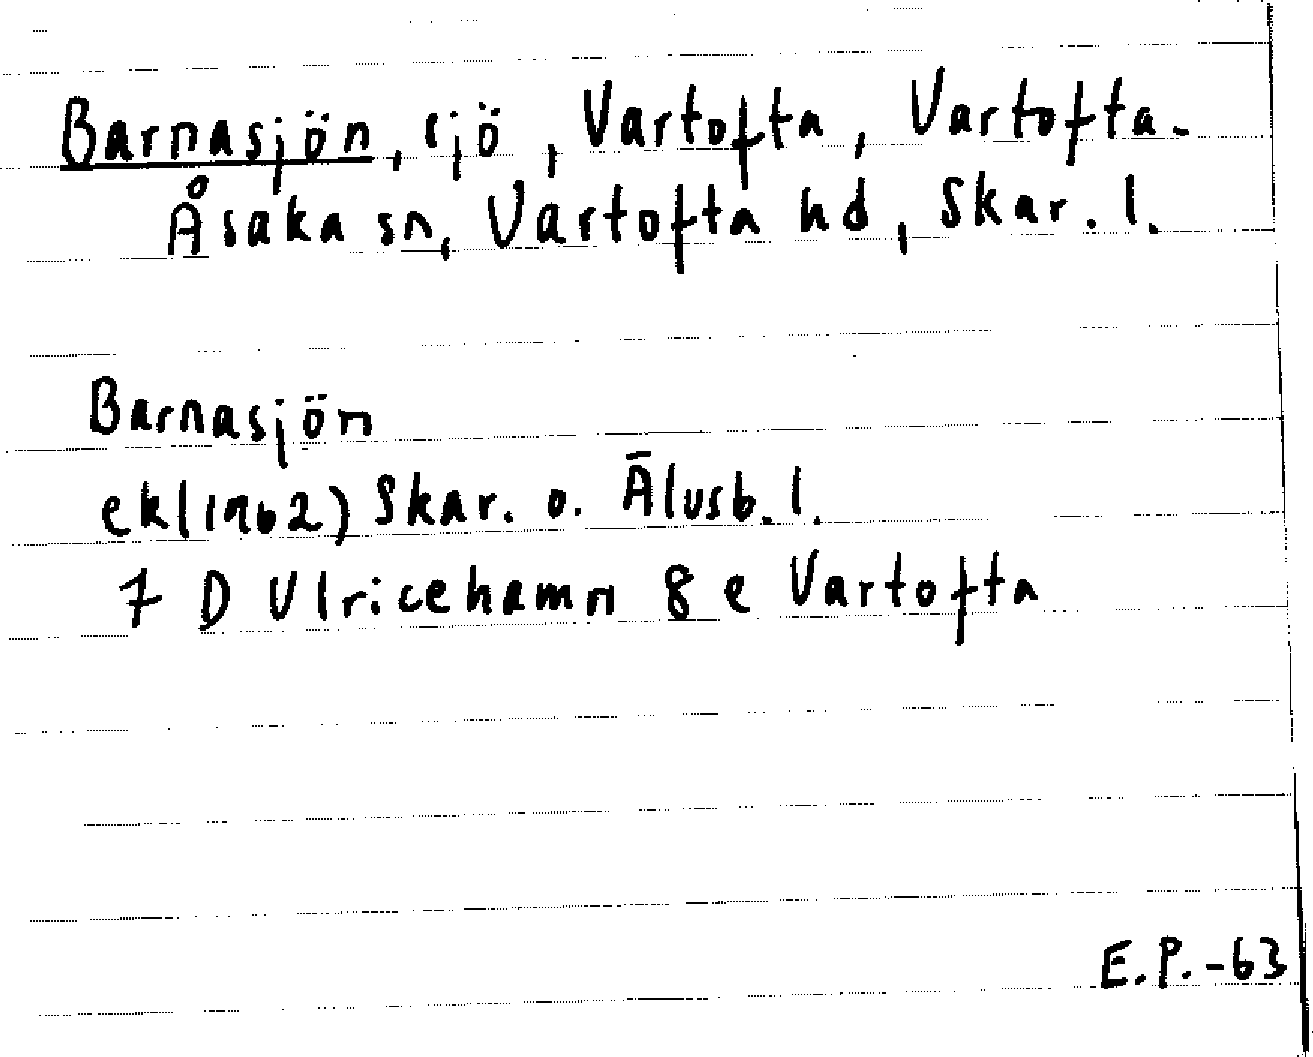 Barnasjön, sjö, Vartofta, Vartofta-
Åsaka sn, Vartofta hd, Skar. l.
Barnasjön
ek(1962) Skar. o. Älvsb. l.
7 D Ulricehamn 8 e Vartofta
E.P.-63